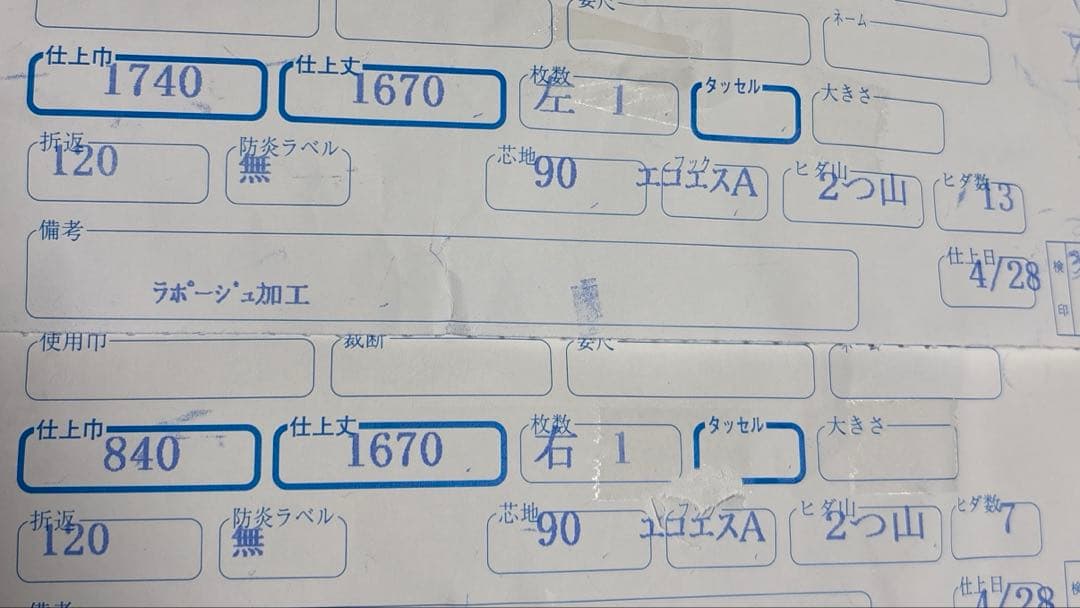 要尺 ネーム
仕上巾 1740 仕上丈 1670 枚数 左 1 タッセル 大きさ
折返 120 防炎ラベル 無 芯地 90 フック エコエスA ヒダ山 2つ山 ヒダ数 13
備考 仕上日 4/28 検印
ラポージュ加工
使用巾 裁断 要尺 ネーム
仕上巾 840 仕上丈 1670 枚数 右 1 タッセル 大きさ
折返 120 防炎ラベル 無 芯地 90 フック エコエスA ヒダ山 2つ山 ヒダ数 7
備考 仕上日 4/28 検